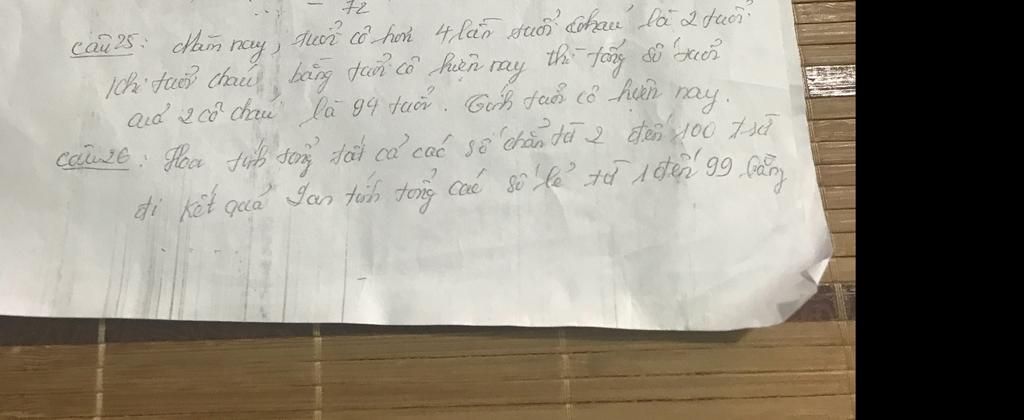 72
Câu 25: Năm nay, tuổi cô hơn 4 lần tuổi cháu là 2 tuổi.
Khi tuổi cháu bằng tuổi cô hiện nay thì tổng số tuổi
của 2 cô cháu là 94 tuổi. Tính tuổi cô hiện nay.
Câu 26: Hoa tính tổng tất cả các số chẵn từ 2 đến 100 trừ
đi kết quả Lan tính tổng các số lẻ từ 1 đến 99 bằng